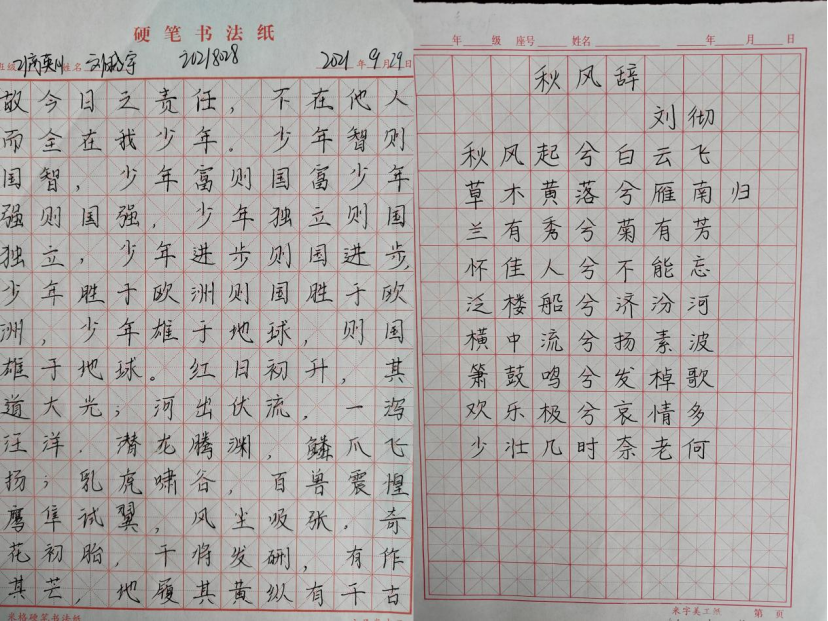 硬笔书法纸
姓名 2021 年 9 月 29 日
故今日之责任，不在他人
而全在我少年。少年智则
国智，少年富则国富少年
强则国强，少年独立则国
独立，少年进步则国进步，
少年胜于欧洲则国胜于欧
洲，少年雄于地球，则国
雄于地球。红日初升，其
道大光；河出伏流，一泻
汪洋．潜龙腾渊，鳞爪飞
扬；乳虎啸谷，百兽震惶
鹰隼试翼，风尘吸张．奇
花初胎，干将发硎，有作
其芒，地履其黄纵有千古
米格硬笔书法纸
年 级 座号 姓名 年 月 日
秋风辞
刘彻
秋风起兮白云飞
草木黄落兮雁南归
兰有秀兮菊有芳
怀佳人兮不能忘
泛楼船兮济汾河
横中流兮扬素波
箫鼓鸣兮发棹歌
欢乐极兮哀情多
少壮几时奈老何
第 页